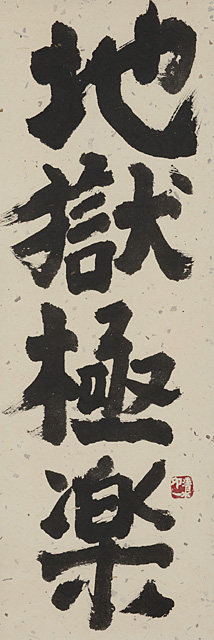 地獄極楽